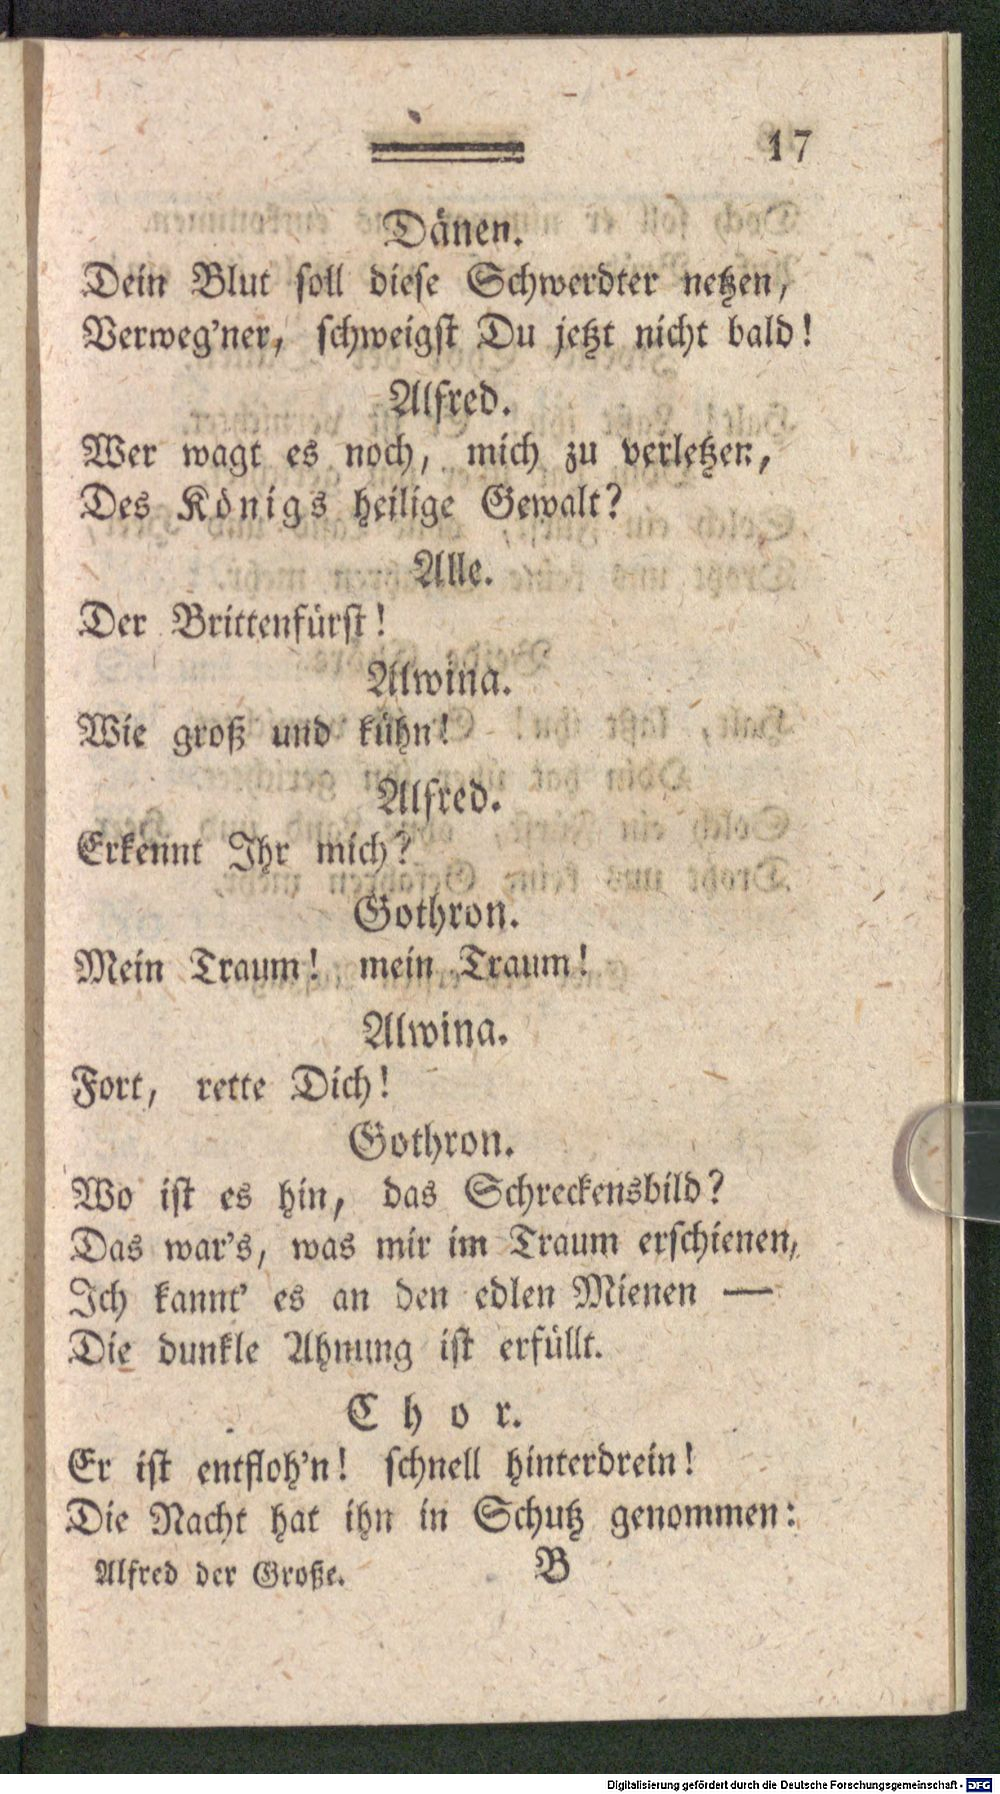 17
Dänen.
Dein Blut soll diese Schwerdter netzen,
Verweg'ner, schweigst Du jetzt nicht bald!
Alfred.
Wer wagt es noch, mich zu verletzen,
Des Königs heilige Gewalt?
Alle.
Der Brittenfürst!
Alwina.
Wie groß und kühn!
Alfred.
Erkennt Ihr mich?
Gothron.
Mein Traum! mein Traum!
Alwina.
Fort, rette Dich!
Gothron.
Wo ist es hin, das Schreckensbild?
Das war's, was mir im Traum erschienen,
Ich kannt' es an den edlen Mienen —
Die dunkle Ahnung ist erfüllt.
Chor.
Er ist entfloh'n! schnell hinterdrein!
Die Nacht hat ihn in Schutz genommen:
Alfred der Große. B
Digitalisierung gefördert durch die Deutsche Forschungsgemeinschaft - DFG